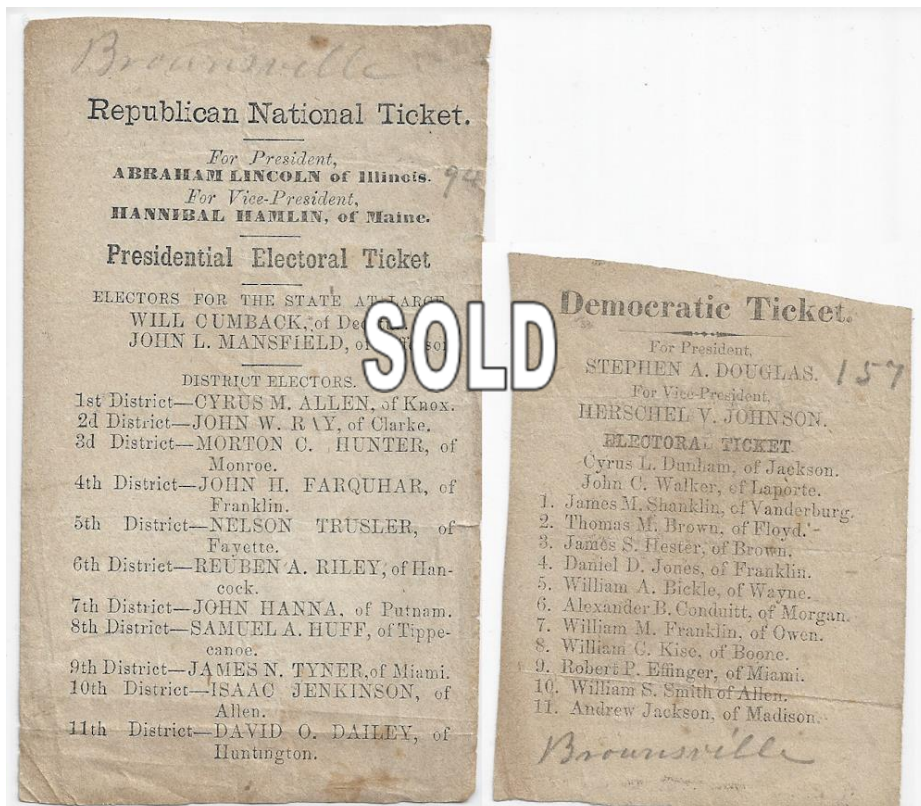 Brownsville
Republican National Ticket.
For President,
ABRAHAM LINCOLN of Illinois.
94
For Vice-President,
HANNIBAL HAMLIN, of Maine.
Presidential Electoral Ticket
ELECTORS FOR THE STATE AT LARGE
WILL CUMBACK, of
JOHN L. MANSFIELD, of
DISTRICT ELECTORS.
1st District—CYRUS M. ALLEN, of Knox.
2d District—JOHN W. RAY, of Clarke.
3d District—MORTON C. HUNTER, of
Monroe.
4th District—JOHN H. FARQUHAR, of
Franklin.
5th District—NELSON TRUSLER, of
Fayette.
6th District—REUBEN A. RILEY, of Han-
cock.
7th District—JOHN HANNA, of Putnam.
8th District—SAMUEL A. HUFF, of Tippe-
canoe.
9th District—JAMES N. TYNER, of Miami.
10th District—ISAAC JENKINSON, of
Allen.
11th District—DAVID O. DAILEY, of
Huntington.
SOLD
Democratic Ticket.
For President,
STEPHEN A. DOUGLAS.
157
For Vice-President,
HERSCHEL V. JOHNSON.
ELECTORAL TICKET
Cyrus L. Dunham, of Jackson.
John C. Walker, of Laporte.
1. James M. Shanklin, of Vanderburg.
2. Thomas M. Brown, of Floyd.
3. James S. Hester, of Brown.
4. Daniel D. Jones, of Franklin.
5. William A. Bickle, of Wayne.
6. Alexander B. Conduitt, of Morgan.
7. William M. Franklin, of Owen.
8. William C. Kise, of Boone.
9. Robert P. Effinger, of Miami.
10. William S. Smith of Allen.
11. Andrew Jackson, of Madison.
Brownsville